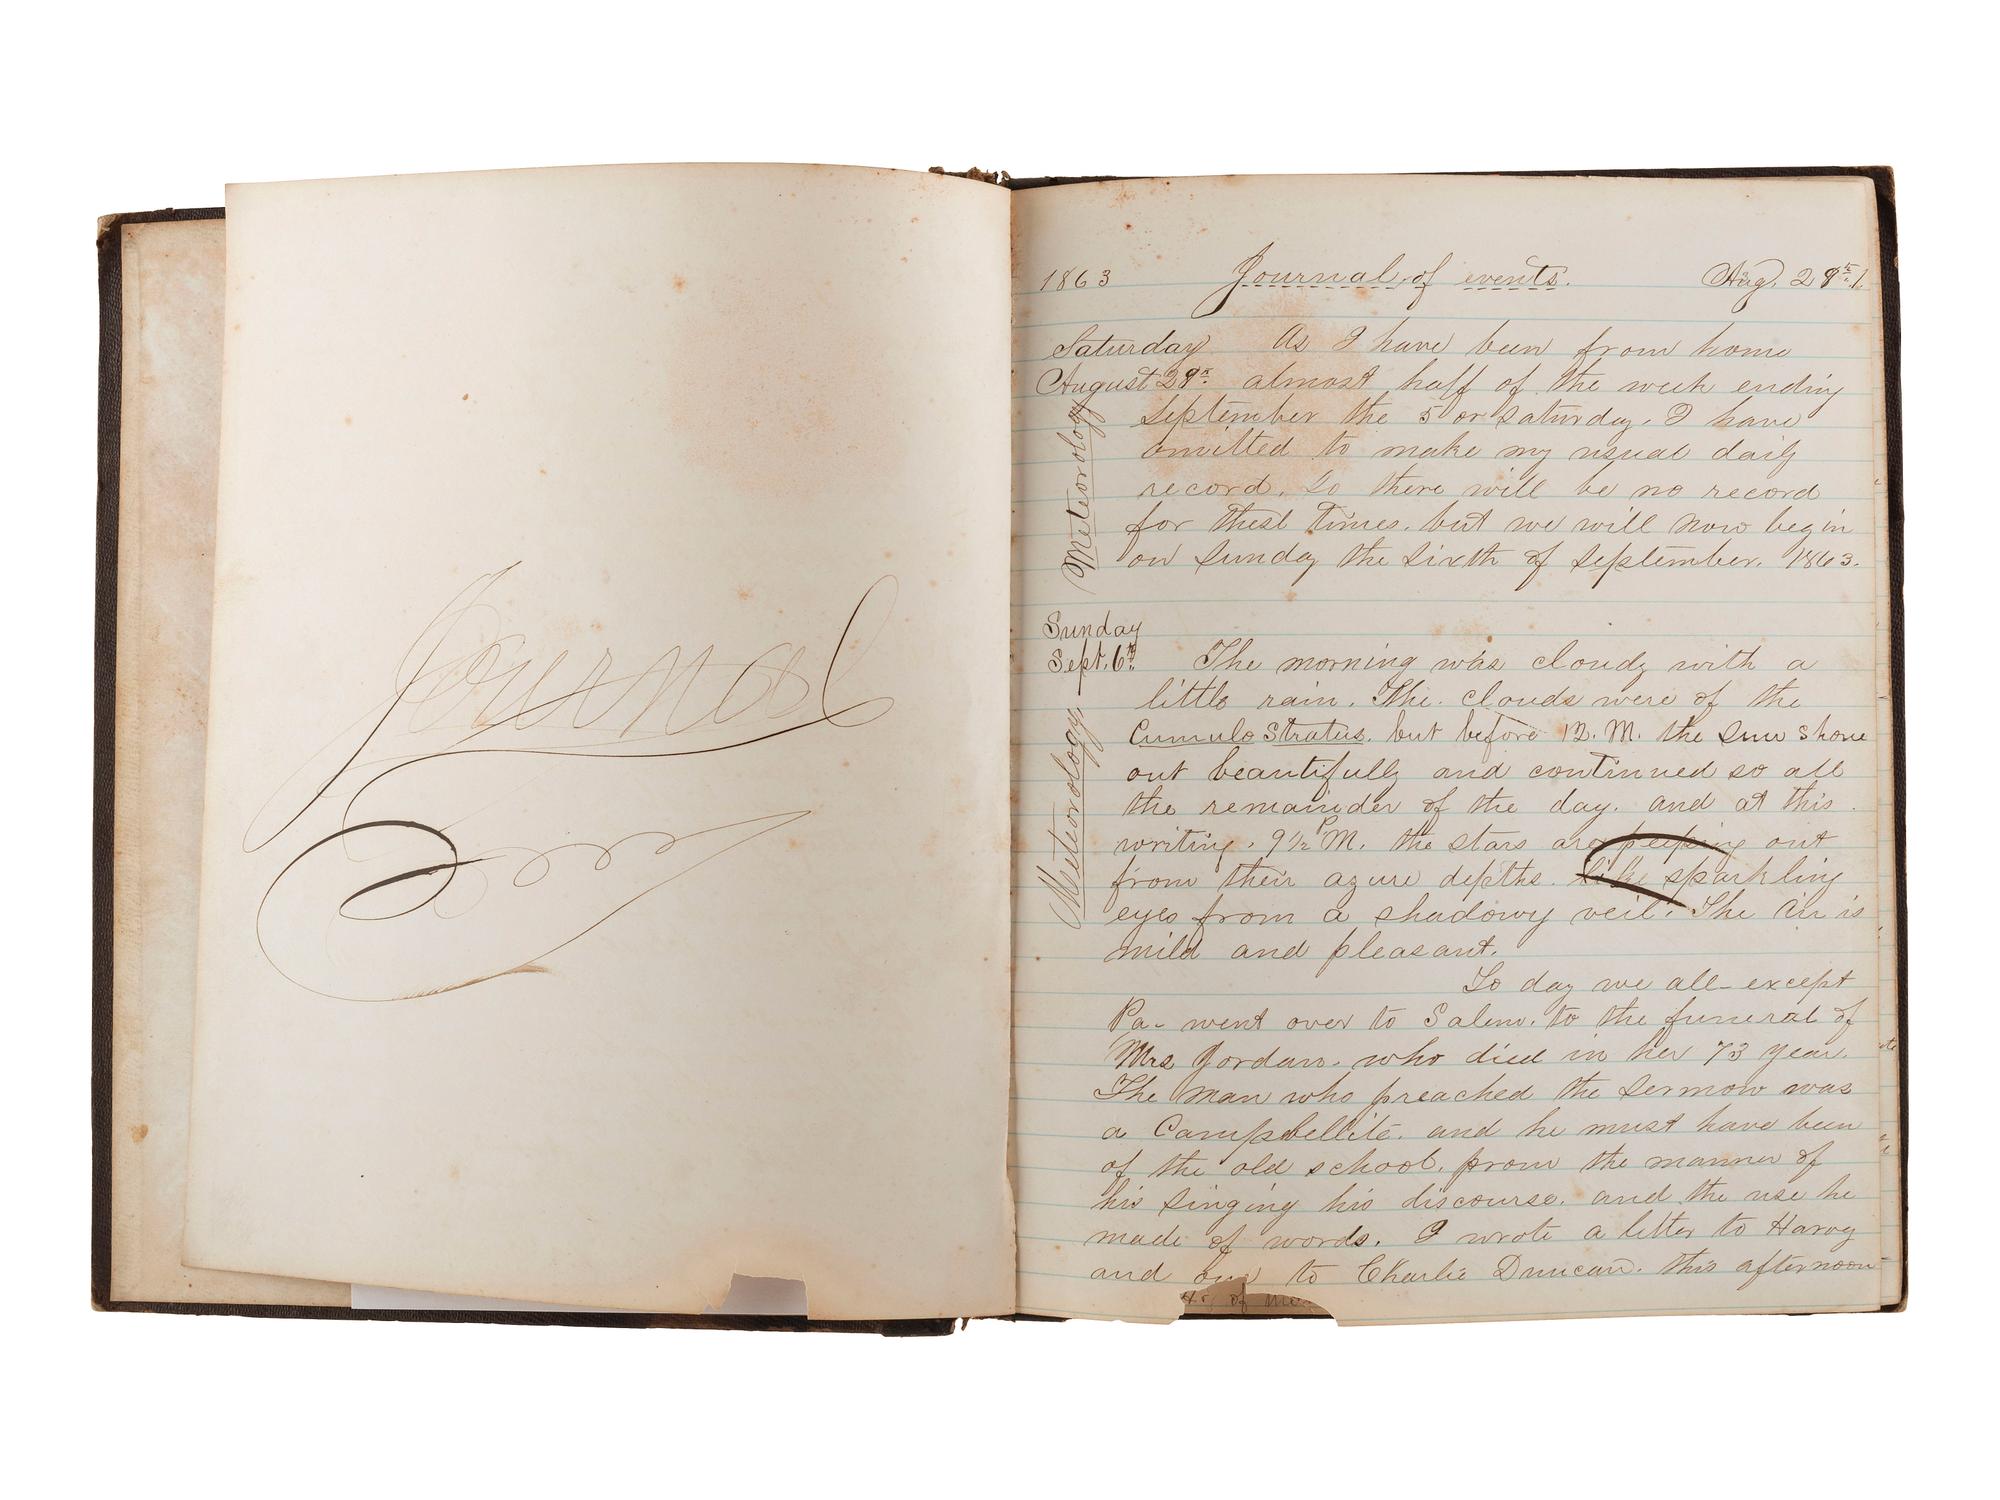 Journal
1863 Journal of events. Aug. 29th 1
Saturday As I have been from home
August 29th almost half of the week ending
September the 5 or Saturday, I have
omitted to make my usual daily
record. So there will be no record
for these times. but we will now begin
on Sunday the Sixth of September. 1863.
Meteorology
Sunday
Sept. 6th The morning was cloudy with a
little rain. The clouds were of the
Cumulo Stratus. but before 12. M. the Sun shone
out beautifully and continued so all
the remainder of the day. and at this
writing. 9 1/2 P M. the stars are peeping out
from their azure depths. like sparkling
eyes from a shadowy veil. The air is
mild and pleasant.
Meteorology
To day we all - except
Pa - went over to Salem. to the funeral of
Mrs Jordan. who died in her 73 year.
The man who preached the Sermon was
a Campbellite. and he must have been
of the old school. from the manner of
his singing his discourse. and the use he
made of words. I wrote a letter to Harvy
and one to Charlie Duncan. this afternoon
of